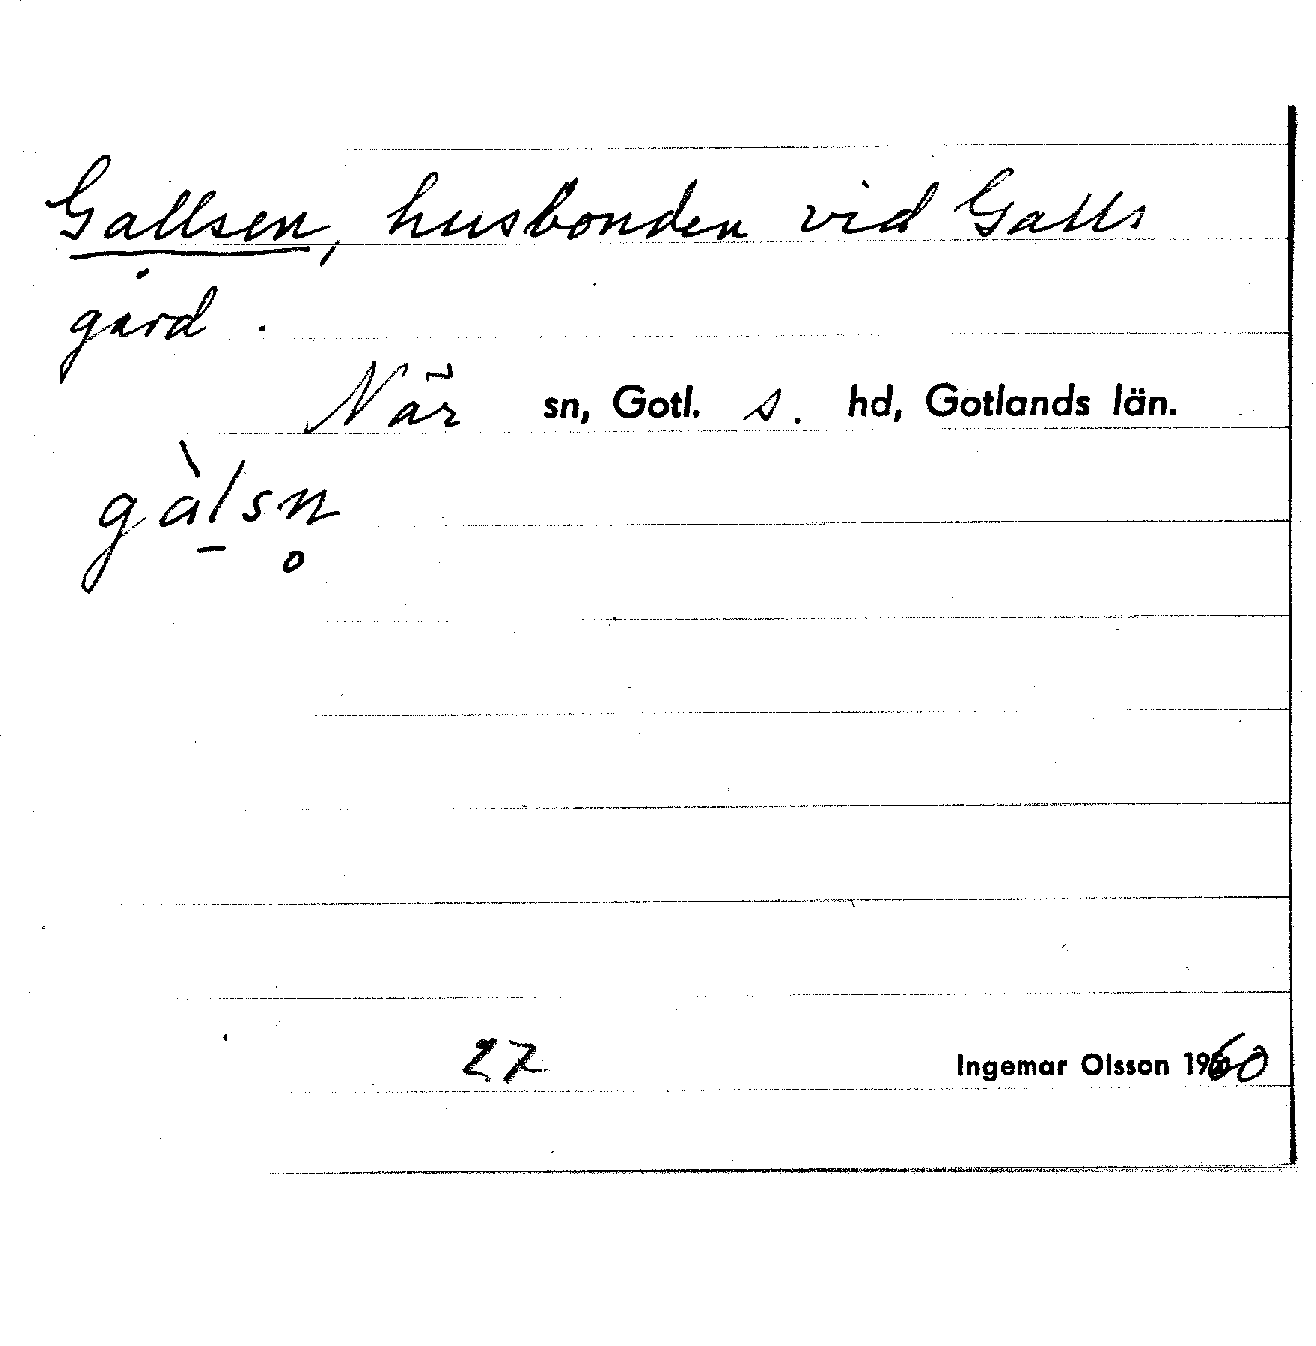 Gallsen, husbonden vid Galls
gård.
När sn, Gotl. s. hd, Gotlands län.
gàl̠sn̥
27 Ingemar Olsson 1960